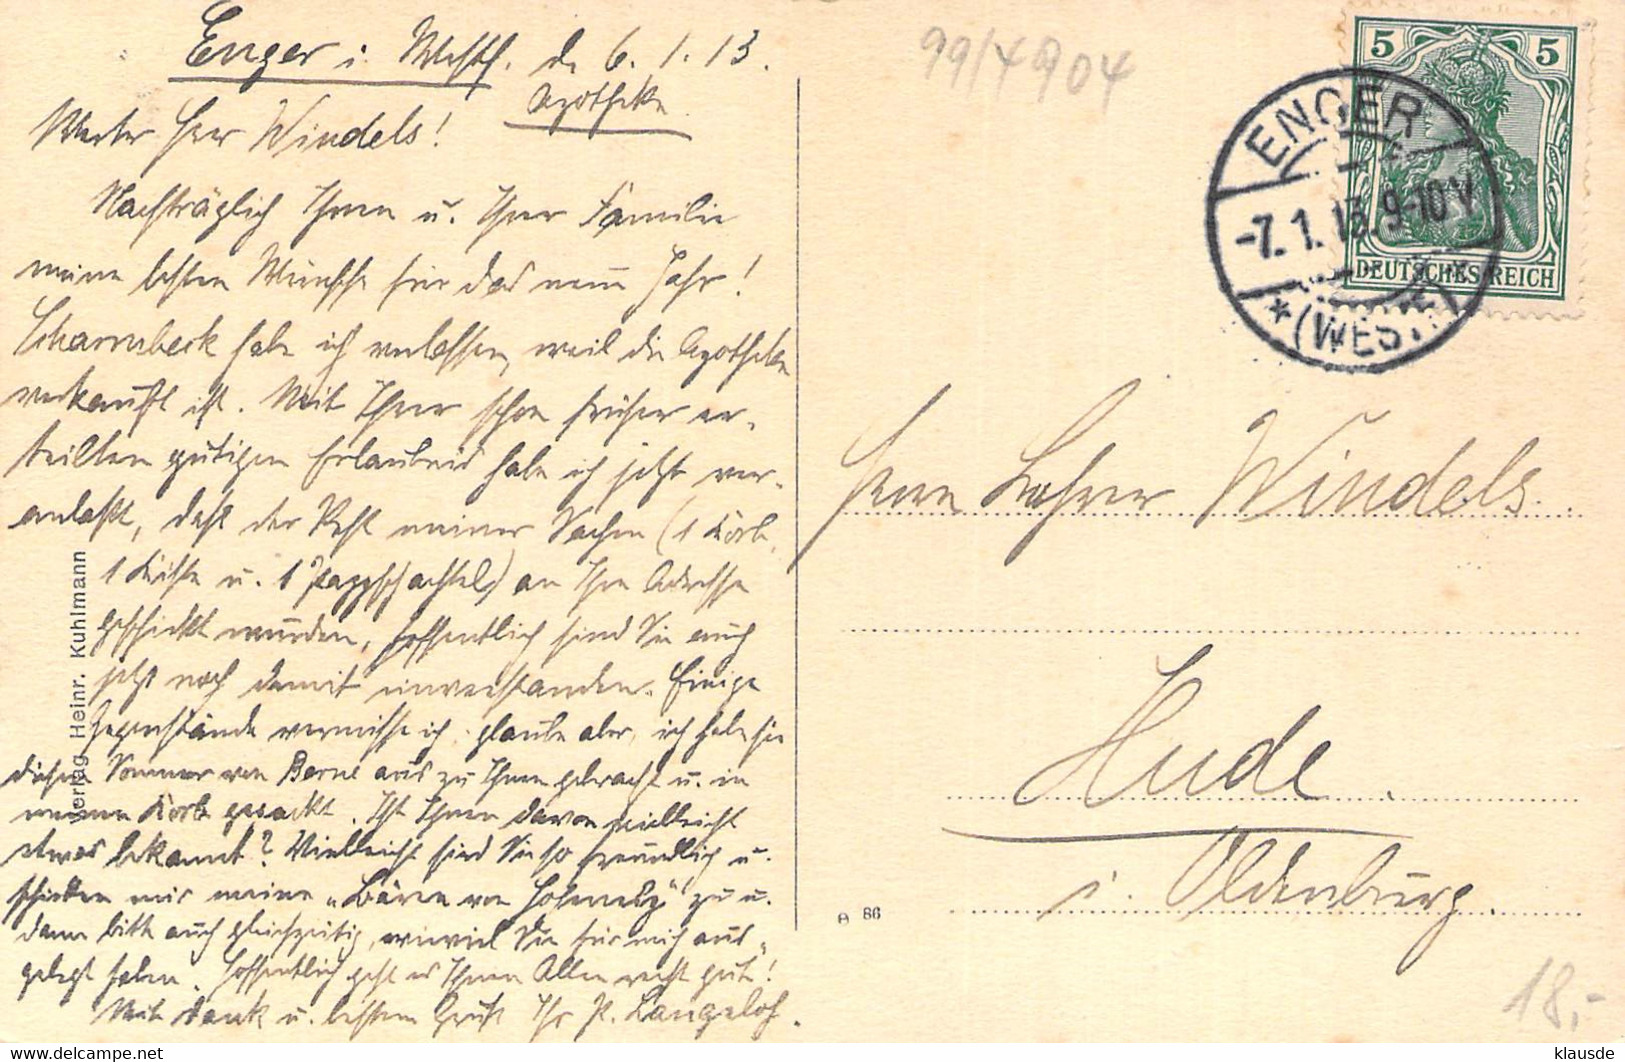 Enger i. Westf. d. 6.1.13.
Apotheke.
Werter Herr Windels!
Nachträglich Ihnen u. Ihrer Familie
meine besten Wünsche für das neue Jahr!
Scharmbeck habe ich verlassen, weil die Apotheke
verkauft ist. Mit Ihrer schon früher er-
teilten gütigen Erlaubnis habe ich jetzt ver-
anlaßt, daß der Rest meiner Sachen (1 Korb,
1 Kiste u. 1 Pappschachtel) an Ihre Adresse
geschickt wurden, hoffentlich sind Sie auch
jetzt noch damit einverstanden. Einige
Gegenstände vermisse ich, glaube aber, ich habe sie
diesen Sommer von Berne aus zu Ihnen gebracht u. in
meinen Korb gepackt. Ist Ihnen davon vielleicht
etwas bekannt? Vielleicht sind Sie so freundlich u.
schicken mir meine „Bären von Hohenesp" zu u.
dann bitte auch gleichzeitig, wieviel Sie für mich aus-
gelegt haben. Hoffentlich geht es Ihnen Allen recht gut!
Mit Dank u. bestem Gruß Ihr P. Langeloh.
Verlag Heinr. Kuhlmann
86
99/4904
5 5
DEUTSCHES REICH
ENGER
-7.1.13.9-10V
* (WESTF.)
Herrn Lehrer Windels.
Hude.
i. Oldenburg.
18,-
klausde
www.delcampe.net